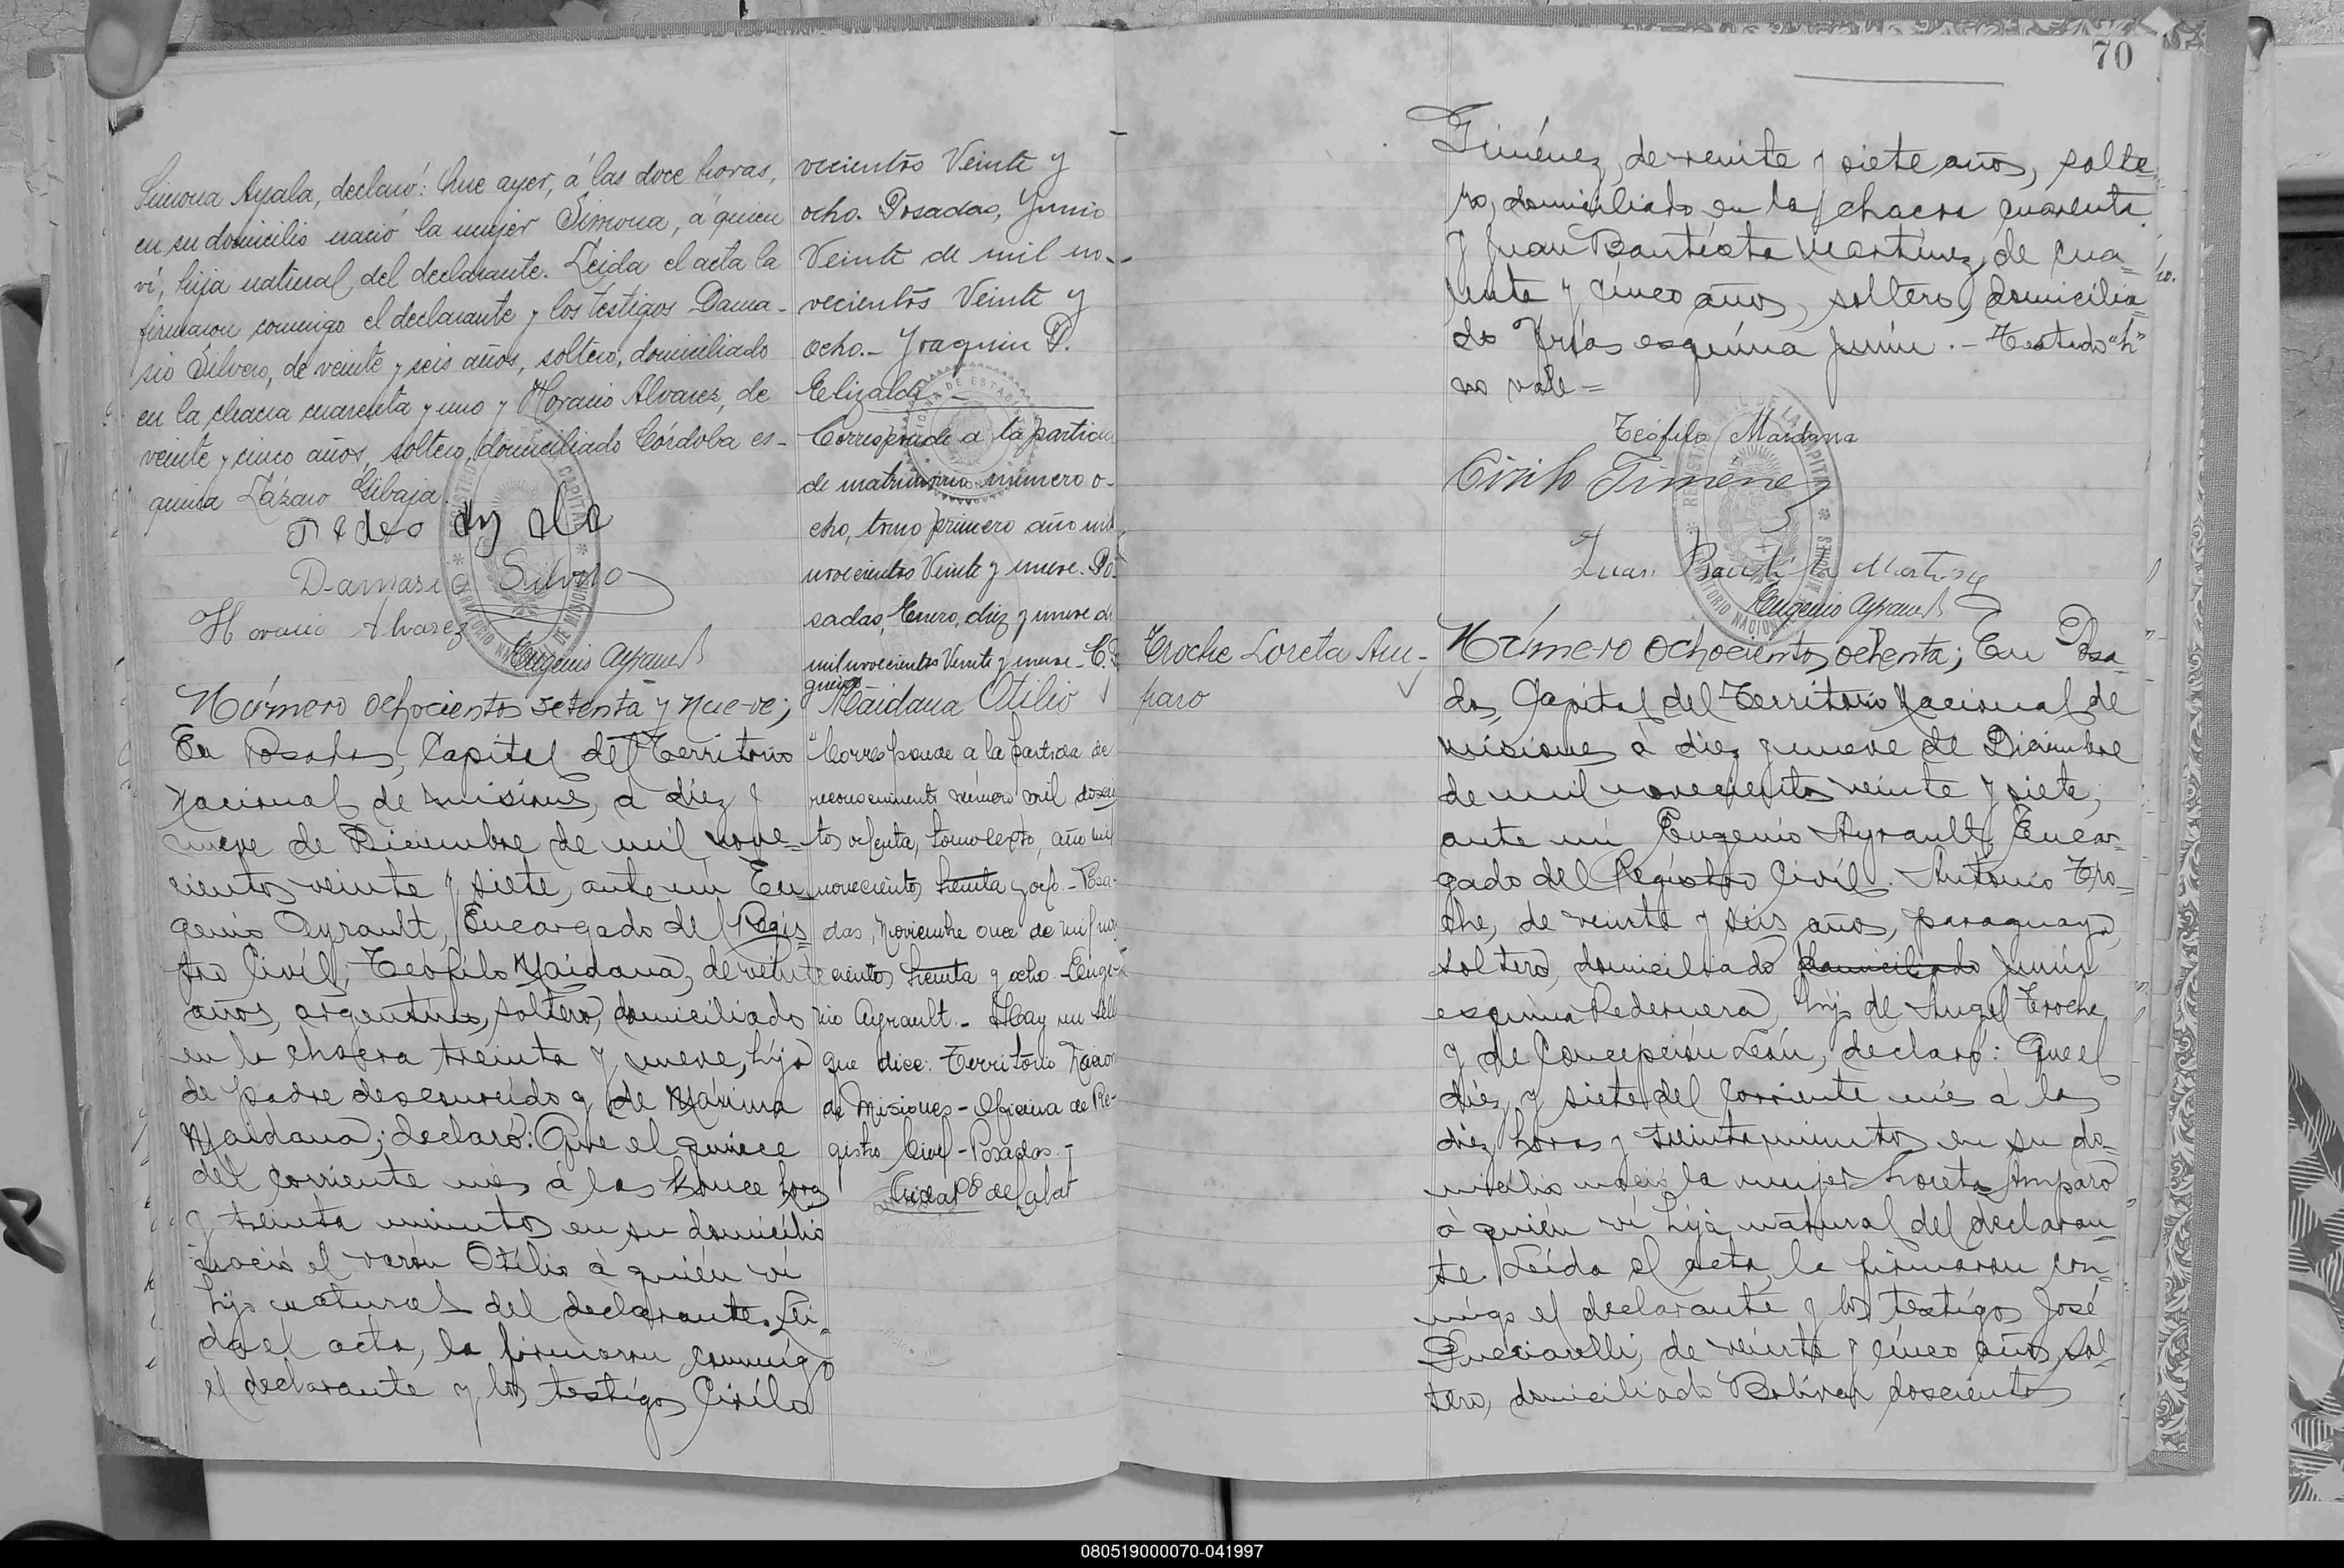 Simona Ayala, declaró: Que ayer, á las doce horas,
en su domicilio nació la mujer Simona, á quien
ví, hija natural del declarante. Leida el acta la
firmaron conmigo el declarante y los testigos Dama-
sio Silvero, de veinte y seis años, soltero, domiciliado
en la chacra cuarenta y uno y Horacio Alvarez, de
veinte y cinco años, soltero, domiciliado Córdoba es-
quina Lázaro Gibaja.
Pedro Ayala
Damasio Silvero
Horacio Alvarez
Eugenio Ayrault
Número ochocientos setenta y nueve;
En Posadas, Capital del Territorio
Nacional de Misiones, a diez y
nueve de Diciembre de mil nove-
cientos veinte y siete, ante mí Eu
genio Ayrault, Encargado del Regis-
tro Civíl, Teófilo Maidana, de veinte
años, argentino, soltero, domiciliado
en la chacra treinta y nueve, hijo
de padre desconocido y de Máxima
Maidana; declaró: Que el quince
del corriente més á las once horas
y treinta minutos en su domicilio
nació el varón Otilio á quién ví
hijo natural del declarante. Lei-
da el acta, la firmaron conmigo
el declarante y los testigos Cirilo
vecientos Veinte y
ocho. Posadas, Junio
Veinte de mil no-
vecientos Veinte y
ocho.- Joaquin P.
Elizalde
Corresponde a la partida
de matrimonio número o-
cho, tomo primero año mil
novecientos Veinte y nueve. Po-
sadas, Enero, diez y nueve de
mil novecientos Veinte y nueve.
Maidana Otilio
Corresponde a la partida de
reconocimiento número mil doscien
tos ochenta, tomo sexto, año mil
novecientos treinta y ocho - Posa-
das, Noviembre once de mil nov
ecientos treinta y ocho - Euge
nio Ayrault.- Hay un sello
que dice: Territorio Nacion
de Misiones - Oficina de Re-
gistro Civil - Posadas. -
70
Giménez, de veinte y siete años, solte
ro, domiciliado en la chacra cuarenta
y Juan Bautista Martínez, de cua-
renta y cinco años, soltero, domicilia-
do Frías esquina Junín.- Testado "h"
no vale =
Teófilo Maidana
Cirilo Timenez
Juan Bautista Martinez
Eugenio Ayrault
Troche Loreta Am-
paro
Número ochocientos ochenta; En Posa-
das, Capital del Territorio Nacional de
Misiones á diez y nueve de Diciembre
de mil novecientos veinte y siete,
ante mi Eugenio Ayrault, Encar-
gado del Registro Civíl. Antonio Tro-
che, de veinte y seis años, paraguayo,
soltero, domiciliado domiciliado Junín
esquina Pedernera, hijo de Angel Troche
y de Concepción León, declaró: Que el
diéz y siete del corriente més á las
diéz horas y treinta minutos en su do-
micilio nació la mujer Loreta Amparo
á quién ví hija natural del declaran-
te. Leída el acta, la firmaron con-
migo el declarante y los testigos José
Pucciarelli, de veinte y cinco años, sol-
tero, domiciliado Bolívar doscientos
080519000070-041997